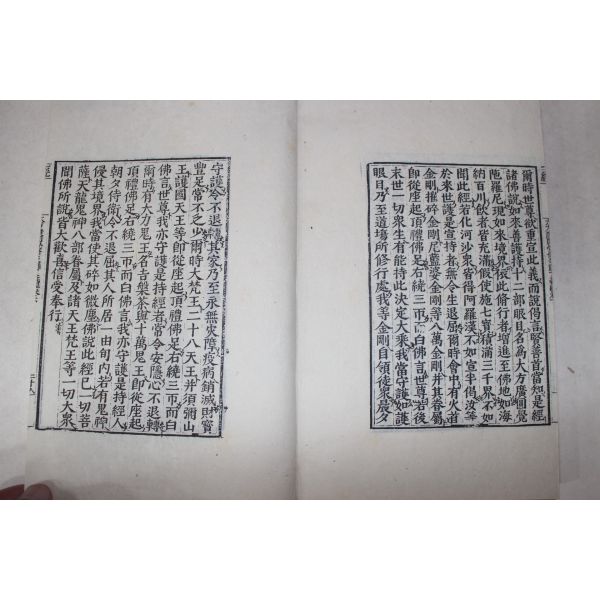 爾時世尊欲重宣此義而說偈言賢善首當知是經
諸佛說如來善護持十二部眼目名為大方廣圓覺
陁羅尼現如來境界依此修行者增進至佛地如海
納百川飲者皆充滿假使施七寶積滿三千界不如
聞此經若化河沙衆皆得阿羅漢不如宣半偈汝等
於來世護是宣持者無令生退屈爾時會中有火首
金剛摧碎金剛尼藍婆金剛等八萬金剛并其眷屬
即從座起頂禮佛足右繞三帀而白佛言世尊若後
末世一切衆生有能持此決定大乘我當守護如護
眼目乃至道場所修行處我等金剛自領徒衆晨夕
守護令不退轉其家乃至永無災障疫病銷滅財寶
豐足常不乏少爾時大梵王二十八天王并須彌山
王護國天王等即從座起頂禮佛足右繞三帀而白
佛言世尊我亦守護是持經者常令安隱心不退轉
爾時有大力鬼王名吉槃茶與十萬鬼王即從座起
頂禮佛足右繞三帀而白佛言我亦守護是持經人
朝夕侍衛令不退屈其人所居一由旬內若有鬼神
侵其境界我當使其碎如微塵佛說此經已一切菩
薩天龍鬼神八部眷屬及諸天王梵王等一切大衆
聞佛所說皆大歡喜信受奉行